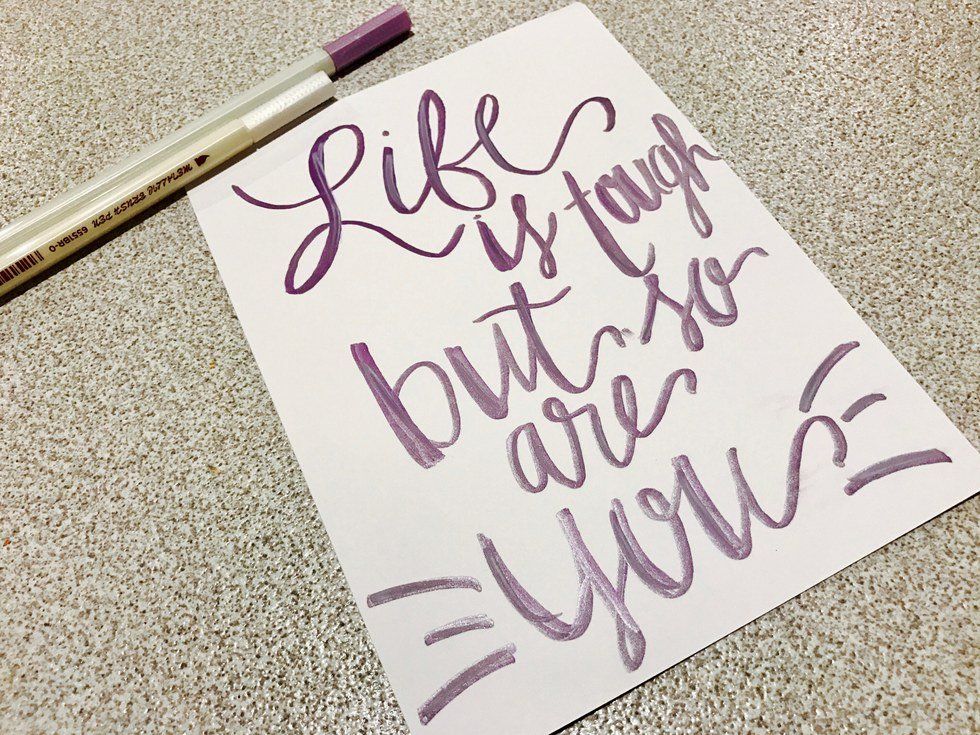 Life
is tough
but so
are
you
METALLIC BRUSH PEN 6551BR-0